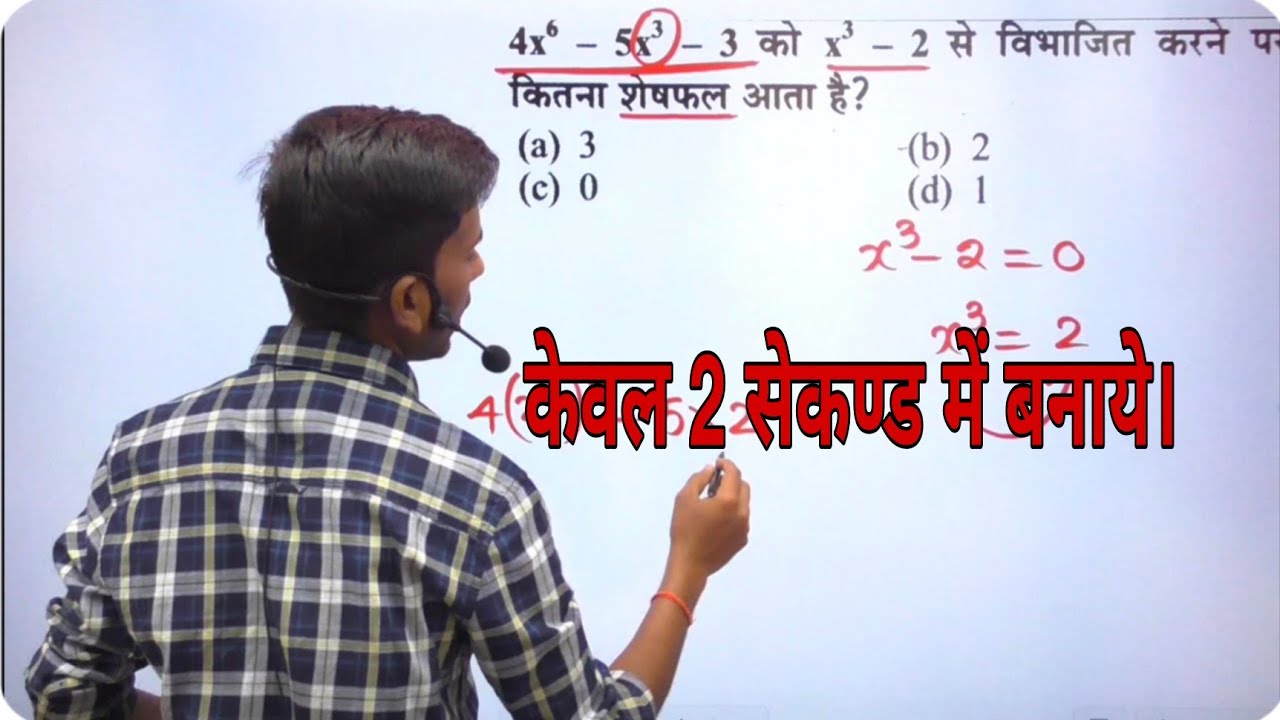 4x⁶ – 5x³ – 3 को x³ – 2 से विभाजित करने
कितना शेषफल आता है?
(a) 3 (b) 2
(c) 0 (d) 1
x³ – 2 = 0
x³ = 2
केवल 2 सेकण्ड में बनाये।
4(